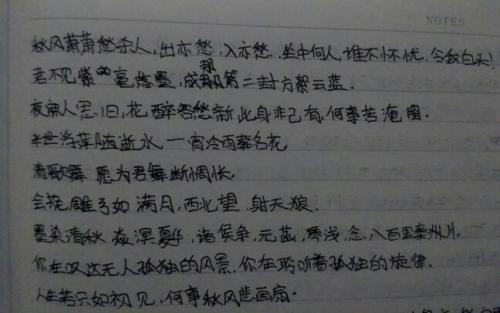 NOTES
秋风萧萧愁杀人,出亦愁,入亦愁,坐中何人,谁不怀忧,令我白头!
君不见紫 毫 墨,成 那 第二封方絮云蓝.
夜 人思旧,花醉客愁新 此身非己有,何事苦淹留.
半世浮萍随逝水,一宵冷雨葬名花
清歌舞 愿为君舞断惆怅.
会挽雕弓如满月,西北望,射天狼.
墨染清秋 溟 ,诸侯争,元 ,琴浅,念,八百里秦州川.
你在 达无人孤独的风景,你在聆听着孤独的旋律.
人生若只如初见,何事秋风悲画扇.